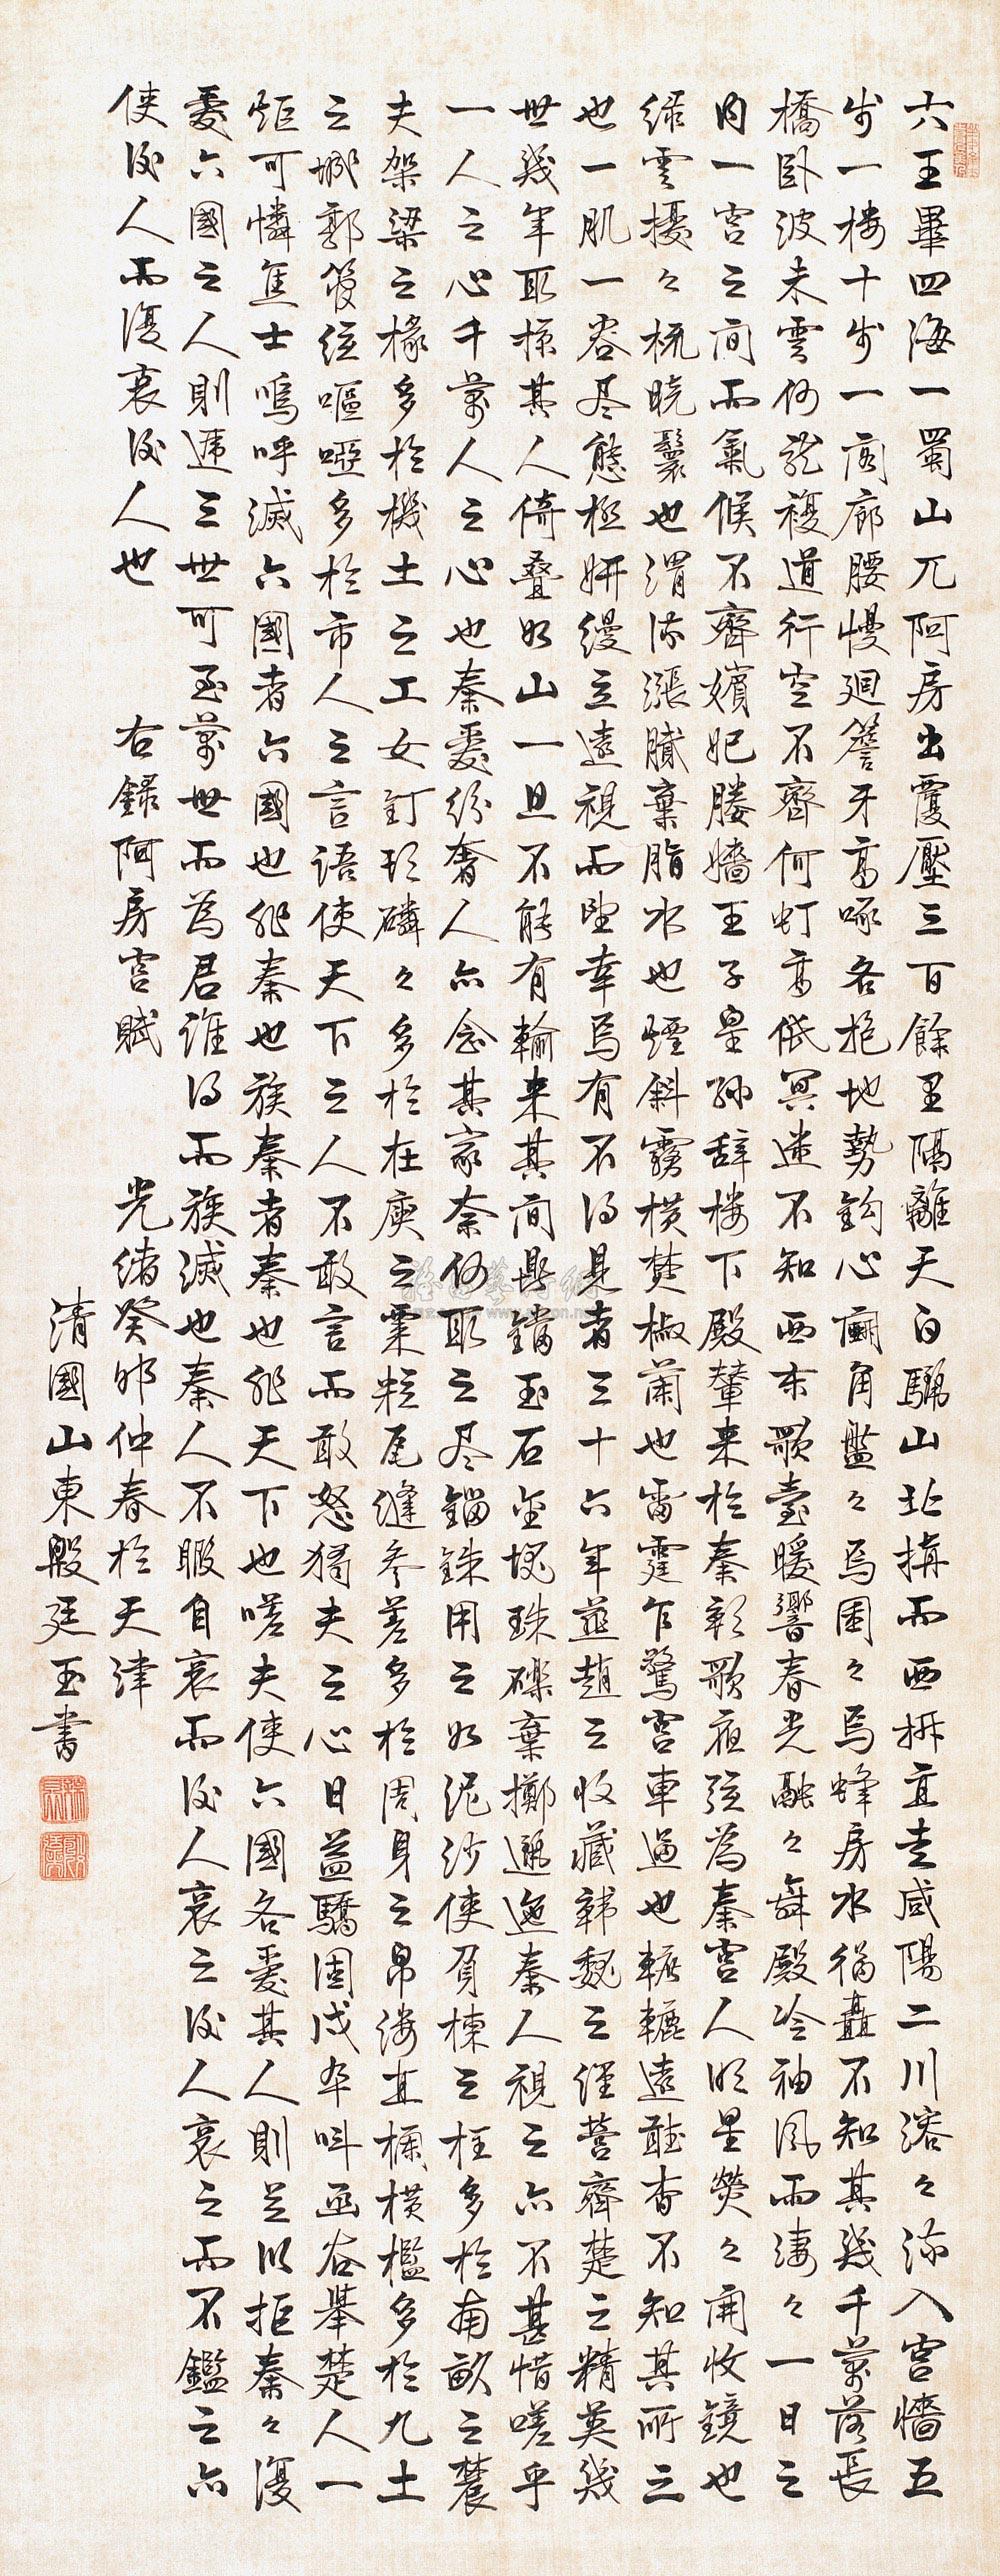 六王畢四海一蜀山兀阿房出覆壓三百餘里隔離天日驪山北搆而西折直走咸陽二川溶々流入宮牆五
步一樓十步一閣廊腰慢廻簷牙高啄各抱地勢鈎心鬭角盤々焉囷々焉蜂房水渦矗不知其幾千萬落長
橋臥波未雲何龍複道行空不霽何虹高低冥迷不知西東歌臺暖響春光融々舞殿冷袖風雨淒々一日之
内一宮之間而氣候不齊嬪妃媵嬙王子皇孫辭樓下殿輦来於秦朝歌夜弦為秦宮人明星熒々開收鏡也
綠雲擾々梳曉鬟也渭流漲膩棄脂水也煙斜霧橫焚椒蘭也雷霆乍驚宮車過也轆轆遠聽杳不知其所之
也一肌一容尽態極妍縵立遠視而望幸焉有不得見者三十六年燕趙之收藏韓魏之經營齊楚之精英幾
世幾年取掠其人倚叠如山一旦不能有輸来其間鼎鐺玉石金塊珠礫棄擲邐迤秦人視之亦不甚惜嗟乎
一人之心千萬人之心也秦愛紛奢人亦念其家奈何取之尽錙銖用之如泥沙使負棟之柱多於南畝之農
夫架梁之椽多於機上之工女釘頭磷々多於在庾之粟粒瓦縫參差多於周身之帛縷直欄橫檻多於九土
之城郭管弦嘔啞多於市人之言語使天下之人不敢言而敢怒獨夫之心日益驕固戍卒叫函谷舉楚人一
炬可憐焦土嗚呼滅六國者六國也非秦也族秦者秦也非天下也嗟夫使六國各愛其人則足以拒秦々復
愛六國之人則遞三世可至萬世而為君誰得而族滅也秦人不暇自哀而後人哀之後人哀之而不鑑之亦
使後人而復哀後人也 右錄阿房宮賦 光緒癸卯仲春於天津
清國山東殷廷玉書